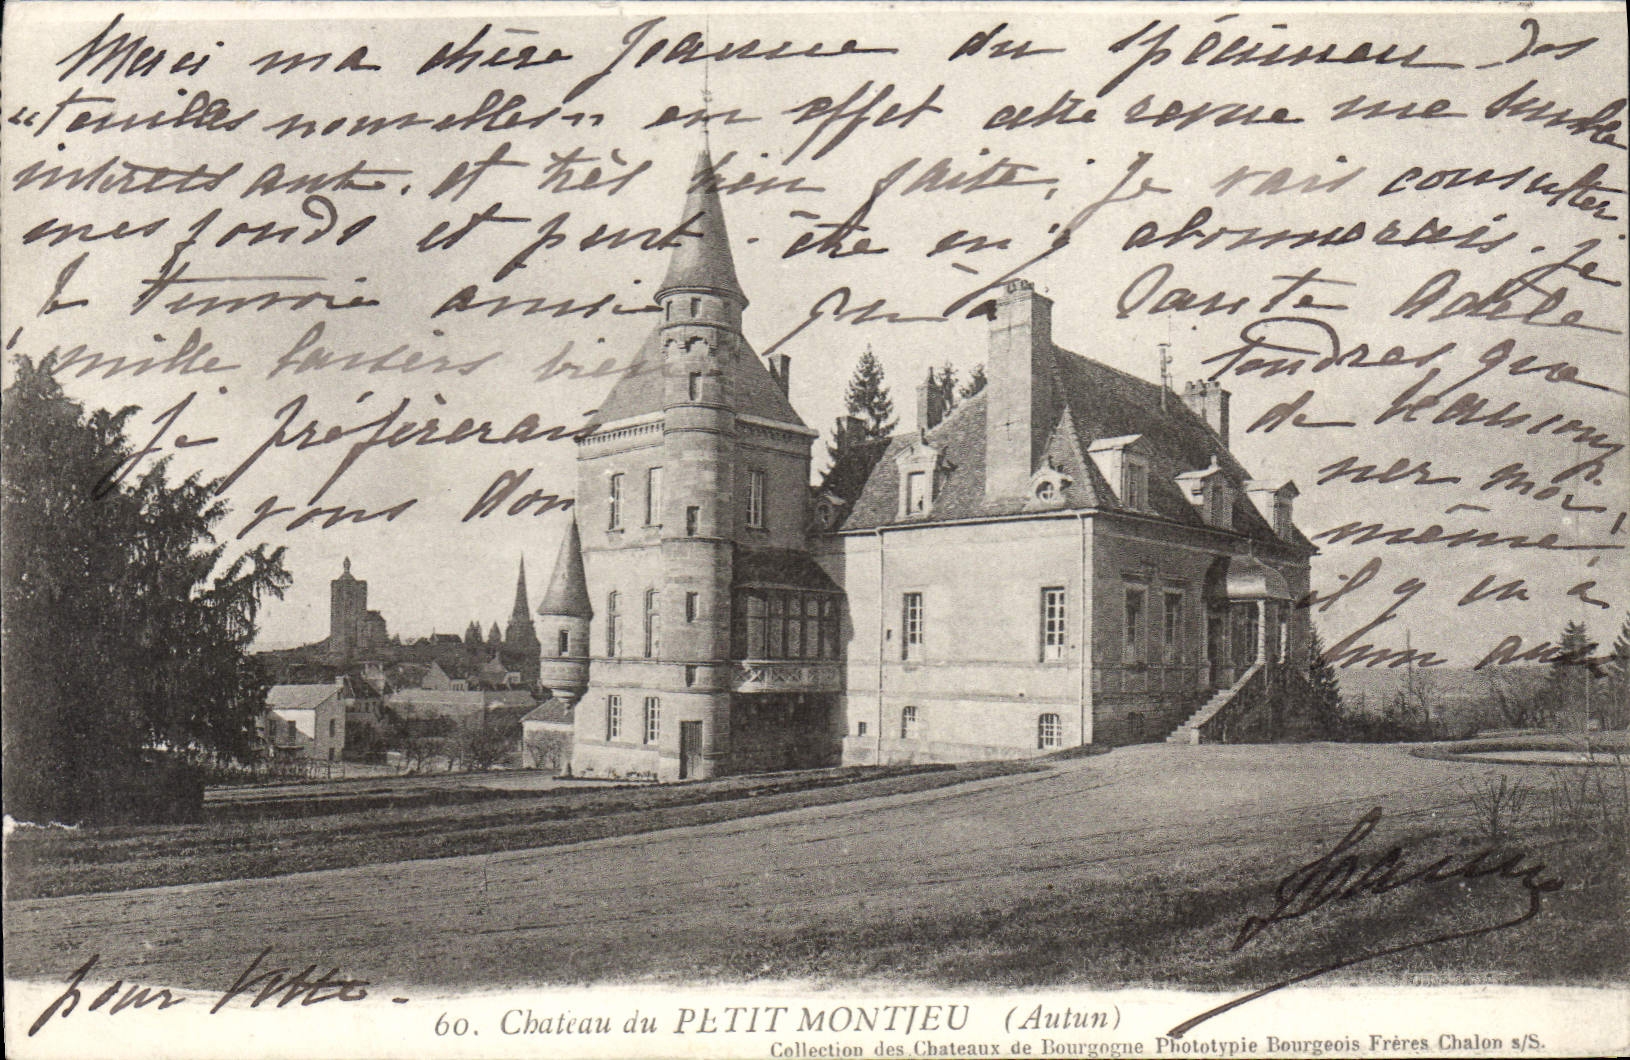 Merci ma chère Jeanne du spécimen des
"feuilles nouvelles" en effet cette revue me semble
intéressante. et très bien faite; je vais consulter
mes fonds et peut-être m'y abonnerais. je
te renvoie ainsi qu'à Tante Adèle
mille baisers bien tendres que
je préfèrerais de beaucoup
vous don ner moi,
même,
il y en a
un aussi
pour Totte.
Jeanne
60. Chateau du PETIT MONTJEU (Autun)
Collection des Chateaux de Bourgogne Phototypie Bourgeois Frères Chalon s/S.